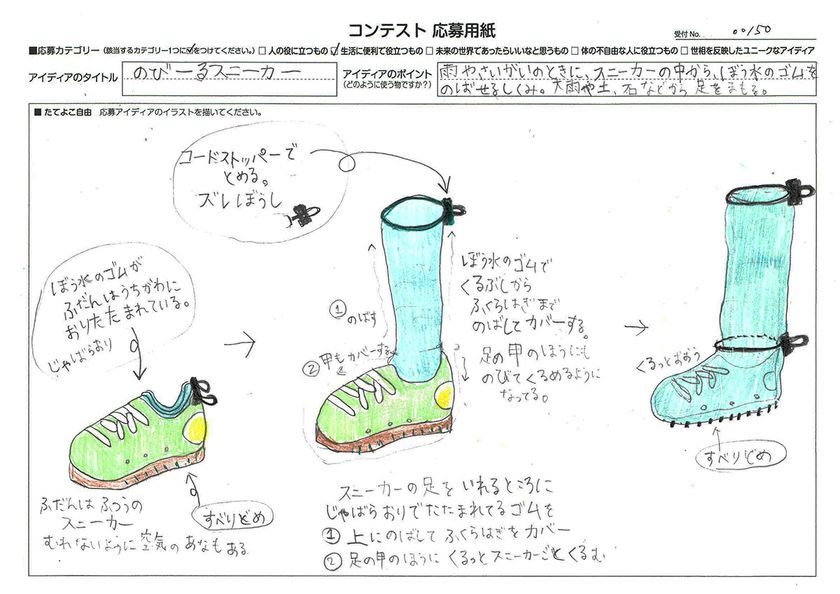 コンテスト 応募用紙
受付 No. 00150
■応募カテゴリー（該当するカテゴリー1つに✓をつけてください。） □ 人の役に立つもの ☑ 生活に便利で役立つもの □ 未来の世界であったらいいなと思うもの □ 体の不自由な人に役立つもの □ 世相を反映したユニークなアイディア
アイディアのタイトル
のびーるスニーカー
アイディアのポイント
（どのように使う物ですか？）
雨やさいがいのときに、スニーカーの中から、ぼう水のゴムを
のばせるしくみ。大雨や土、石などから足をまもる。
■ たてよこ自由 応募アイディアのイラストを描いてください。
コードストッパーで
とめる。
ズレぼうし
ぼう水のゴムが
ふだんはうちがわに
おりたたまれている。
じゃばらおり
ふだんは ふつうの
スニーカー
むれないように 空気の あなも ある
すべりどめ
① のばす
② 甲もカバーする
ぼう水のゴムで
くるぶしから
ふくらはぎまで
のばしてカバーする。
足の甲のほうにも
のびてくるめるように
なってる。
くるっとおおう
すべりどめ
スニーカーの足をいれるところに
じゃばらおりでたたまれてるゴムを
① 上にのばして ふくらはぎをカバー
② 足の甲のほうに くるっとスニーカーごとくるむ